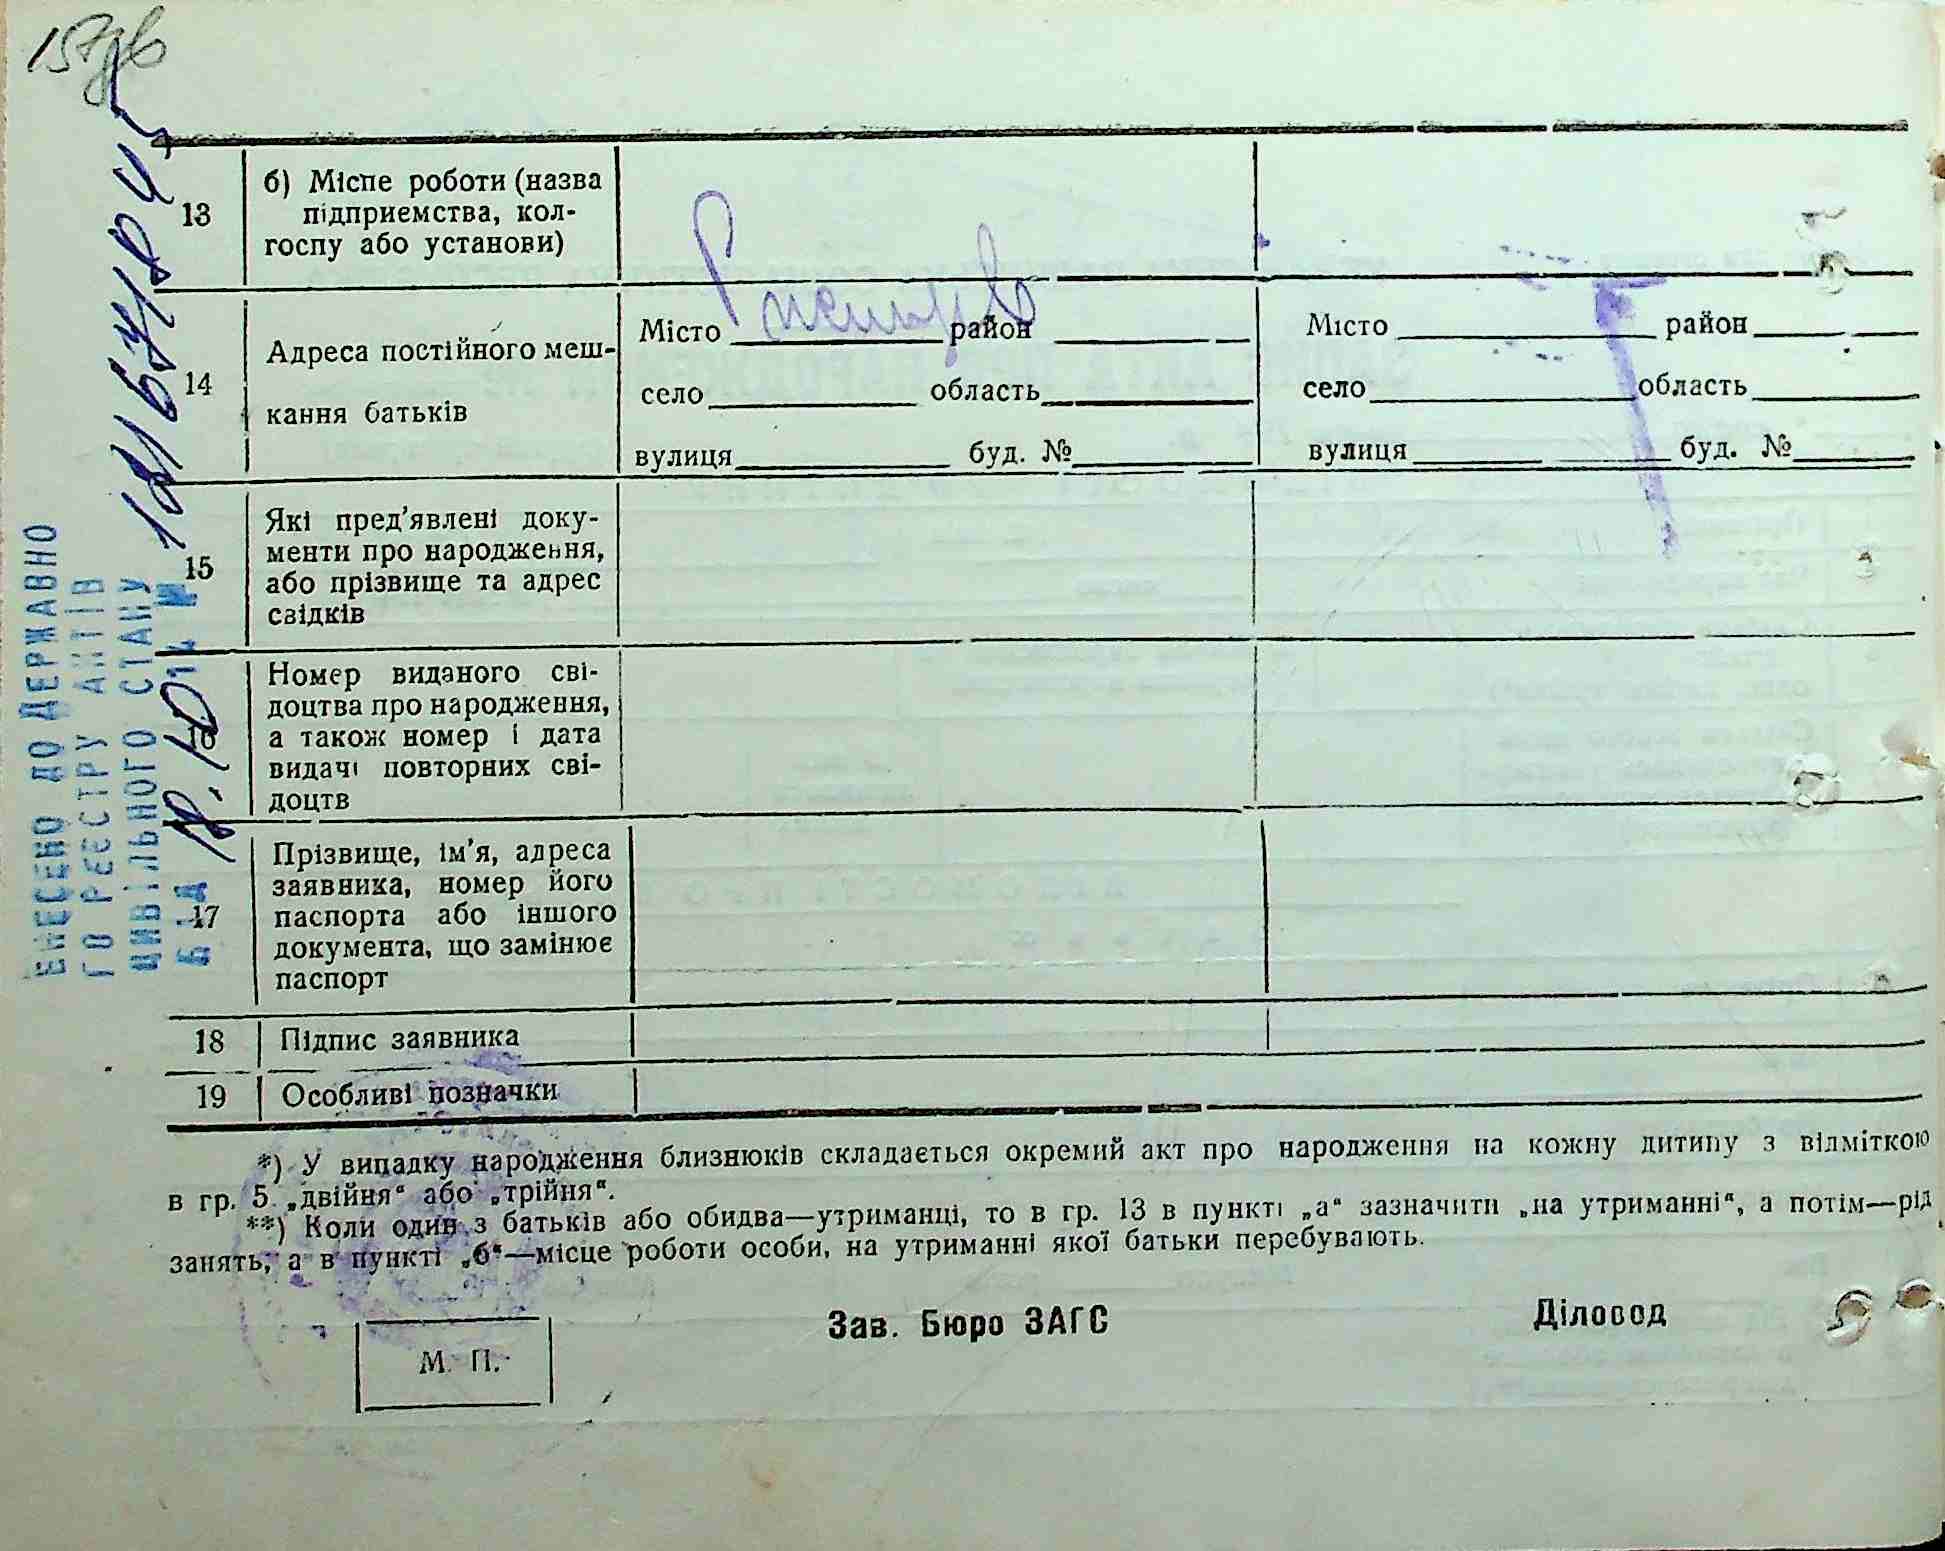 13
б) Місце роботи (назва
підприємства, кол-
госпу або установи)
14
Адреса постійного меш-
кання батьків
Місто район
село область
вулиця буд. №
Місто район
село область
вулиця буд. №
15
Які пред'явлені доку-
менти про народження,
або прізвище та адрес
свідків
16
Номер виданого сві-
доцтва про народження,
а також номер і дата
видачі повторних сві-
доцтв
17
Прізвище, ім'я, адреса
заявника, номер його
паспорта або іншого
документа, що замінює
паспорт
18 Підпис заявника
19 Особливі позначки
*) У випадку народження близнюків складається окремий акт про народження на кожну дитину з відміткою
в гр. 5 „двійня“ або „трійня“.
**) Коли один з батьків або обидва—утриманці, то в гр. 13 в пункті „а“ зазначити „на утриманні“, а потім—рід
занять, а в пункті „б“—місце роботи особи, на утриманні якої батьки перебувають.
Зав. Бюро ЗАГС
Діловод
М. П.
ВНЕСЕНО ДО ДЕРЖАВНО
ГО РЕЄСТРУ АКТІВ
ЦИВІЛЬНОГО СТАНУ
ВІД 18.10 №